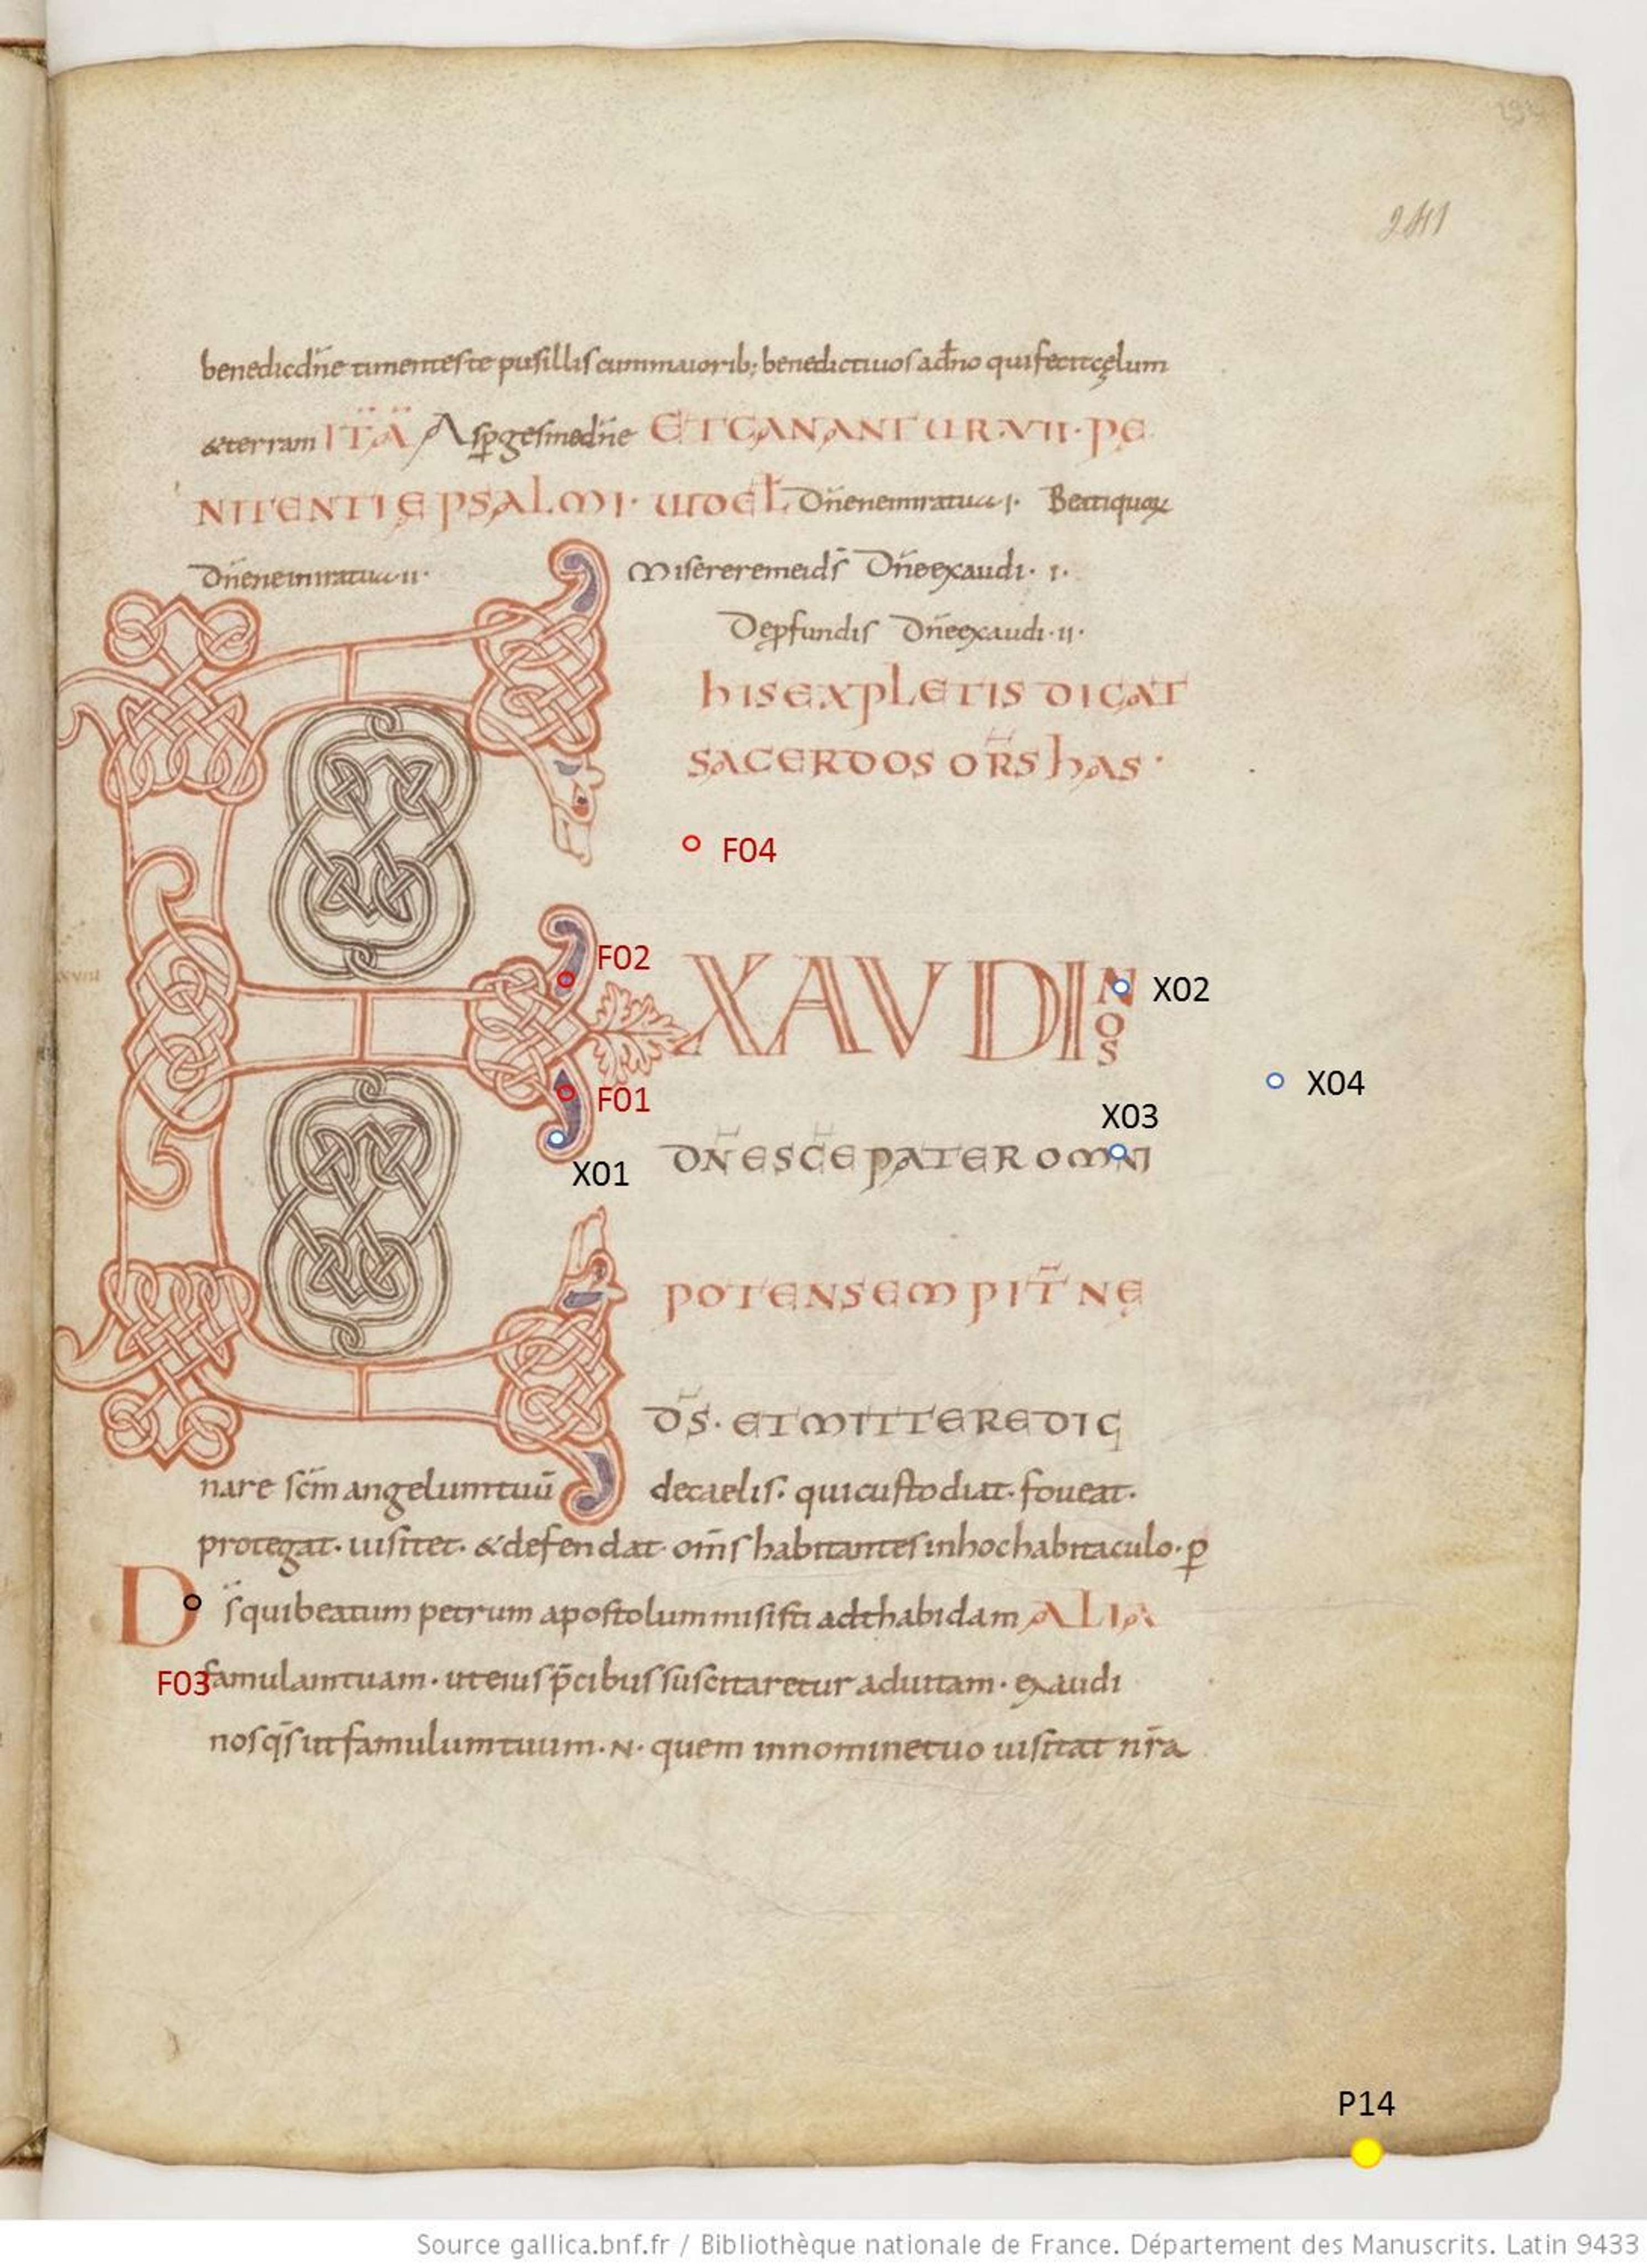 241
benedicdñe timenteste pusilliscummaiorib; benedictiuosadño quifecitcęlum
&terram ITÄ Aspgesmedñe ETCANANTUR·VII·PE
NITENTIĘ PSALMI· UIDEL Dñeneiniratua·I· Beatiquoꝝ
Dñeneiniratua·II· Misereremeids̄ Dñeexaudi·I·
Depfundis Dñeexaudi·II·
hISEXPLETIS DICAT
SACERDOS ORS hAS·
F04
F02
EXAUDINOS
X02
X04
F01
X03
DNE SCE PATER OMNI
X01
POTENS SEMPIT̄NĘ
DS̄· ET MITTERE DIG
nare scm̄ angelumtuū decaelis· quicustodiat· foueat·
protegat· uisitet· &defendat· om̄s habitantes inhochabitaculo· p
Ds̄quibeatum petrum apostolummisisti adthabidam ALIA
F03
famulamtuam· uteius p̄cibus suscitaretur aduitam· exaudi
nosqs̄ utfamulumtuum·N· quem innominetuo uisitat nr̄a
P14
Source gallica.bnf.fr / Bibliothèque nationale de France. Département des Manuscrits. Latin 9433